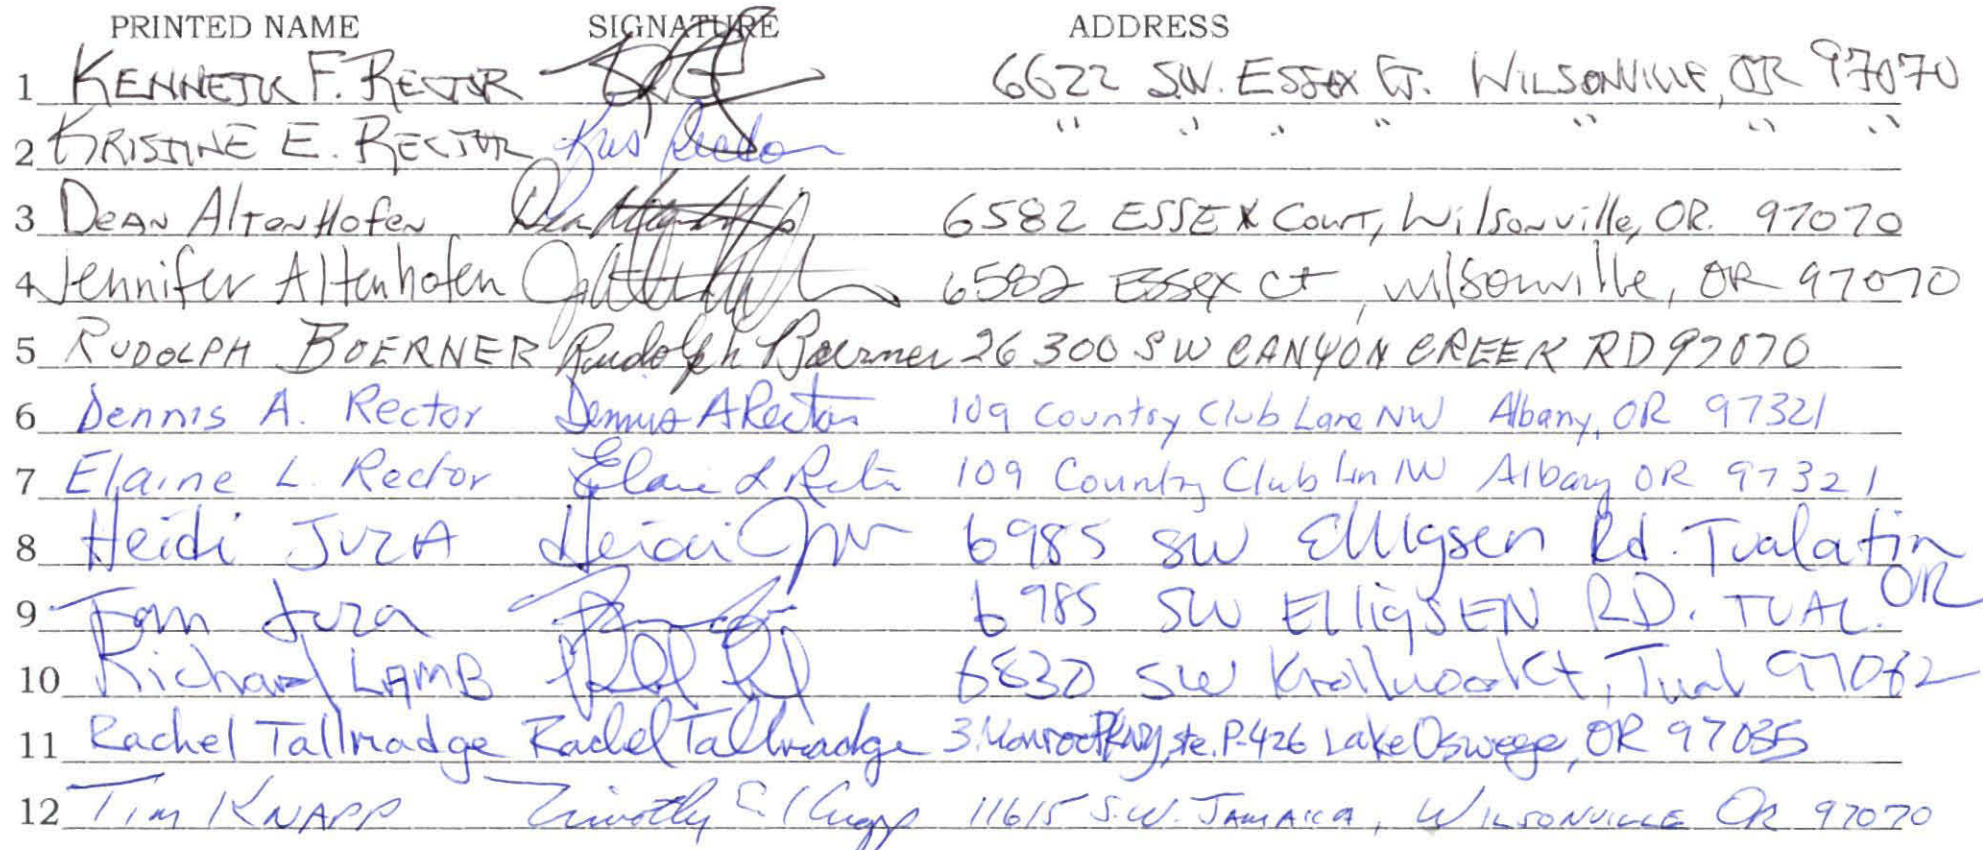 PRINTED NAME SIGNATURE ADDRESS
1 KENNETH F. RECTOR 6622 S.W. ESSEX CT. WILSONVILLE, OR 97070
2 KRISTINE E. RECTOR Kris Rector " " " " " " "
3 DEAN AltenHofen Dean 6582 ESSEX Court, Wilsonville, OR. 97070
4 Jennifer Altenhofen 6582 Essex ct, Wilsonville, OR 97070
5 RUDOLPH BOERNER Rudolph Boerner 26300 SW CANYON CREEK RD 97070
6 Dennis A. Rector Dennis A Rector 109 Country Club Lane NW Albany, OR 97321
7 Elaine L. Rector Elaine L Rector 109 Country Club Ln NW Albany OR 97321
8 Heidi JUZA Heidi 6985 SW Elligsen Rd. Tualatin
OR
9 Tom Juza 6985 SW ElligSEN RD. TUAL.
10 Richard LAMB 6830 SW Krollwood Ct, Tual 97062
11 Rachel Tallmadge Rachel Tallmadge 3 Monroe Pkwy, ste. P-426 Lake Oswego, OR 97035
12 Tim KNAPP Timothy E Knapp 11615 S.W. JAMAICA, WILSONVILLE OR 97070